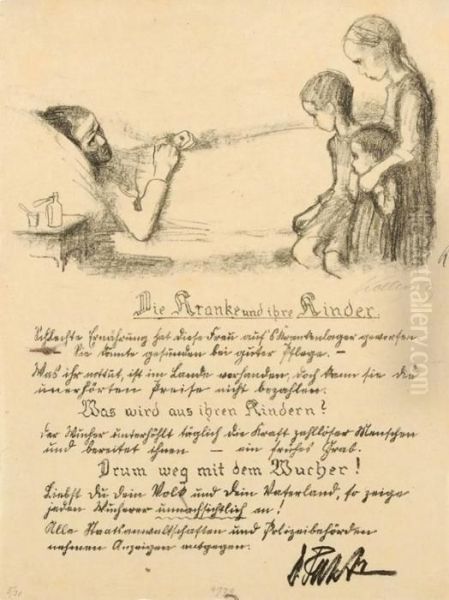 Die Kranke und ihre Kinder.
Schlechte Ernährung hat diese Frau auf's Krankenlager geworfen
Sie könnte gesunden bei guter Pflege. –
Was ihr nottut, ist im Lande vorhanden, doch kann sie die
unerhörten Preise nicht bezahlen.
Was wird aus ihren Kindern?
Der Wucher unterhöhlt täglich die Kraft zahlloser Menschen
und bereitet ihnen – ein frühes Grab.
Drum weg mit dem Wucher!
Liebst du dein Volk und dein Vaterland, so zeige
jeden Wucherer unnachsichtlich an!
Alle Staatsanwaltschaften und Polizeibehörden
nehmen Anzeigen entgegen.